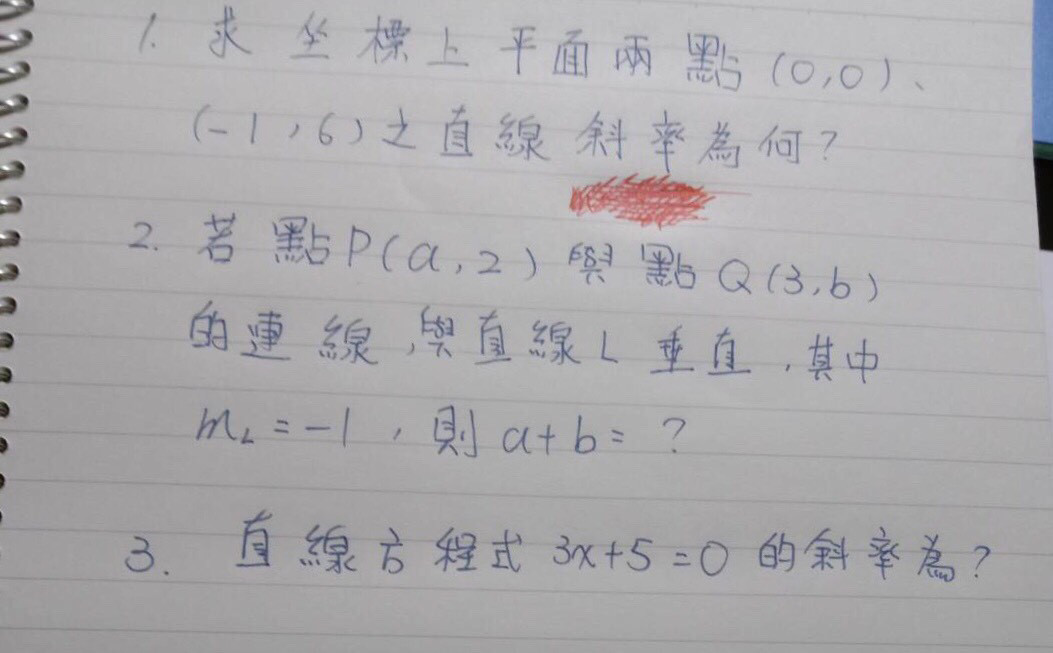 1. 求坐標上平面兩點(0,0)、
(-1,6)之直線斜率為何?
2. 若點P(a,2)與點Q(3,b)
的連線,與直線L垂直,其中
m_L=-1,則a+b=?
3. 直線方程式3x+5=0的斜率為?